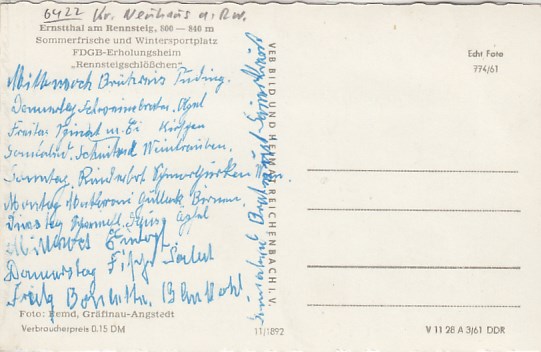 6422 Kr. Neuhaus a. Rw.
Ernstthal am Rennsteig, 800 — 840 m
Sommerfrische und Wintersportplatz
FDGB-Erholungsheim
„Rennsteigschlößchen"
Mittwoch Brühreis Pudding
Donnerstag Schweinebraten Apfel
Freitag Spinat m. Ei Kirschen
Sonnabend Schnitzel Weintrauben.
Sonntag Rinderbrt
Montag Makkaroni Gullasch Birnen
Dienstag Apfel
Mittwoch Eintopf
Donnerstag Fisch Salat
Freitag
Sonnabend Bratwurst
VEB BILD UND HEIMAT REICHENBACH I. V.
Foto: Remd, Gräfinau-Angstedt
Verbraucherpreis 0,15 DM
11/1892
Echt Foto
774/61
V 11 28 A 3/61 DDR